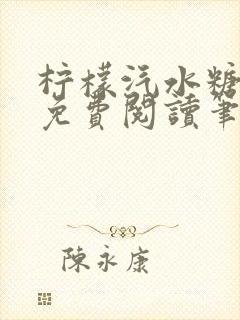 柠檬汽水糖
免費閱讀筆
陳永康